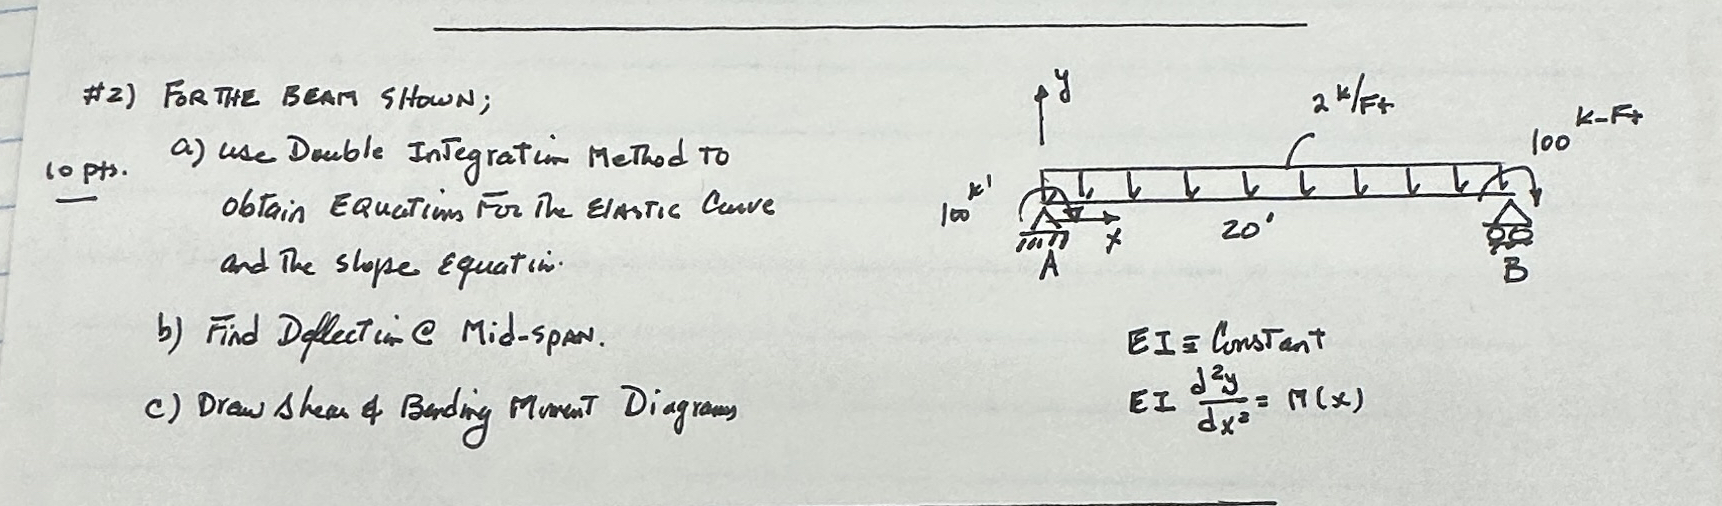 #2) FOR THE BEAM SHOWN;
a) use Double Integration Method to
10 pts.
obtain Equations For The Elastic Curve
and The slope Equation.
b) Find Deflection @ Mid-span.
c) Draw Shear & Bending Moment Diagrams
y
2 k/Ft
100 k-Ft
100 k'
x
20'
A
B
EI ≡ Constant
EI d²y/dx² = M(x)